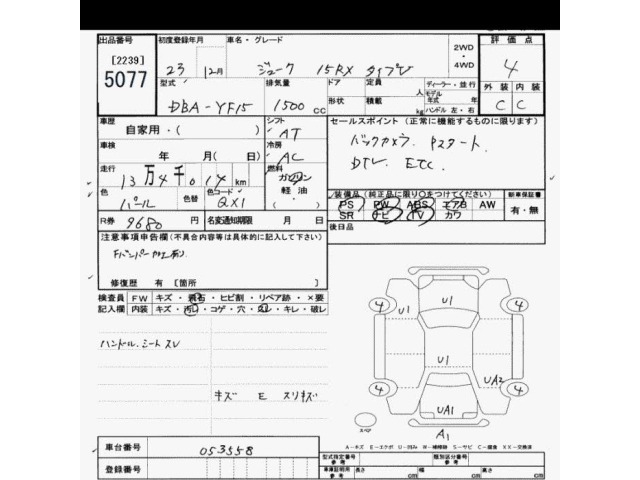 出品番号
[2239]
5077
初度登録年月
23 12月
車名・グレード
ジューク 15RX タイプV
2WD
・
4WD
評価点
4
型式
DBA-YF15
排気量
1500 cc
ドア
形状
定員 人
積載 kg
ディーラー・並行
モデル
年式 年
ハンドル 左・右
外装 内装
C C
車歴
自家用・( )
シフト
AT
セールスポイント (正常に機能するものに限ります)
バックカメラ. Pスタート.
DTV. ETC.
車検
年 月(日)
冷房
AC
走行
13万4千014km
燃料
ガソリン
軽油
色
パール
色替
色コード
QX1
装備品 (純正品に限り○をつけてください)
PS PW ABS エアB AW
SR ナビ TV カワ
新車保証書
有・無
R券
9680 円
名変通知期限 月 日
後日品
注意事項申告欄 (不具合内容等は具体的に記入して下さい)
修復歴 有 [箇所 ]
検査員
記入欄
FW キズ・飛石・ヒビ割・リペア跡・×要
内装 キズ・汚れ・コゲ・穴・スレ・キレ・破レ
ハンドル.シート スレ
キズ E スリキズ
4 4
U1
U1
4 4
UA2
UA1
A1
スペア
車台番号
053558
登録番号
型式指定番号
参考
類別区分番号
参考
車庫証明用
参考
長さ cm 幅 cm 高さ cm